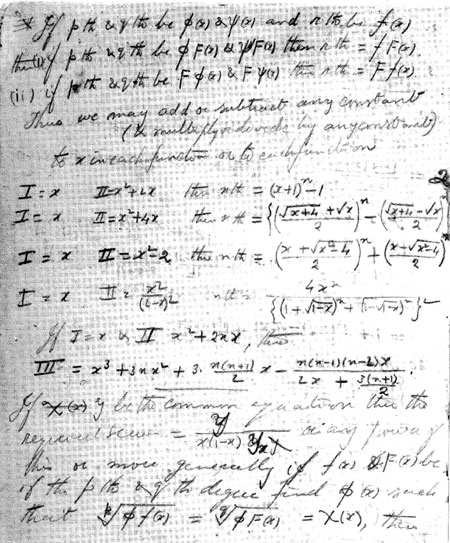 If pth & qth be φ(x) & ψ(x) and nth be f(x)
then (i) if pth & qth be φF(x) & ψF(x) then nth = fF(x)
(ii) if pth & qth be Fφ(x) & Fψ(x) then nth = Ff(x).
Thus we may add or subtract any constant
(& multiply or divide by any constant)
to x in each function or to each function
I = x II = x²+2x then nth = (x+1)ⁿ-1
I = x II = x²+4x then nth = {((√x+4 + √x)/2)ⁿ - ((√x+4 - √x)/2)ⁿ
I = x II = x²-2 then nth = ((x + √x²-4)/2)ⁿ + ((x - √x²-4)/2)ⁿ
I = x II = x²/(2-x)² nth = 4xⁿ/{(1+√1-x)ⁿ + (1-√1-x)ⁿ}²
If I = x & II x²+2nx, then
III = x³ + 3nx² + 3· n(n+1)/2 x - n(n-1)(n-2)x/(2x + 3(n+1)/2)
If be the common equation then the
required series = y/x(1-x) or any power of
this or more generally if f(x) & F(x) be
of the pth & qth degree find φ(x) such
that ᵖ√φf(x) = ᑫ√φF(x) = χ(x), then